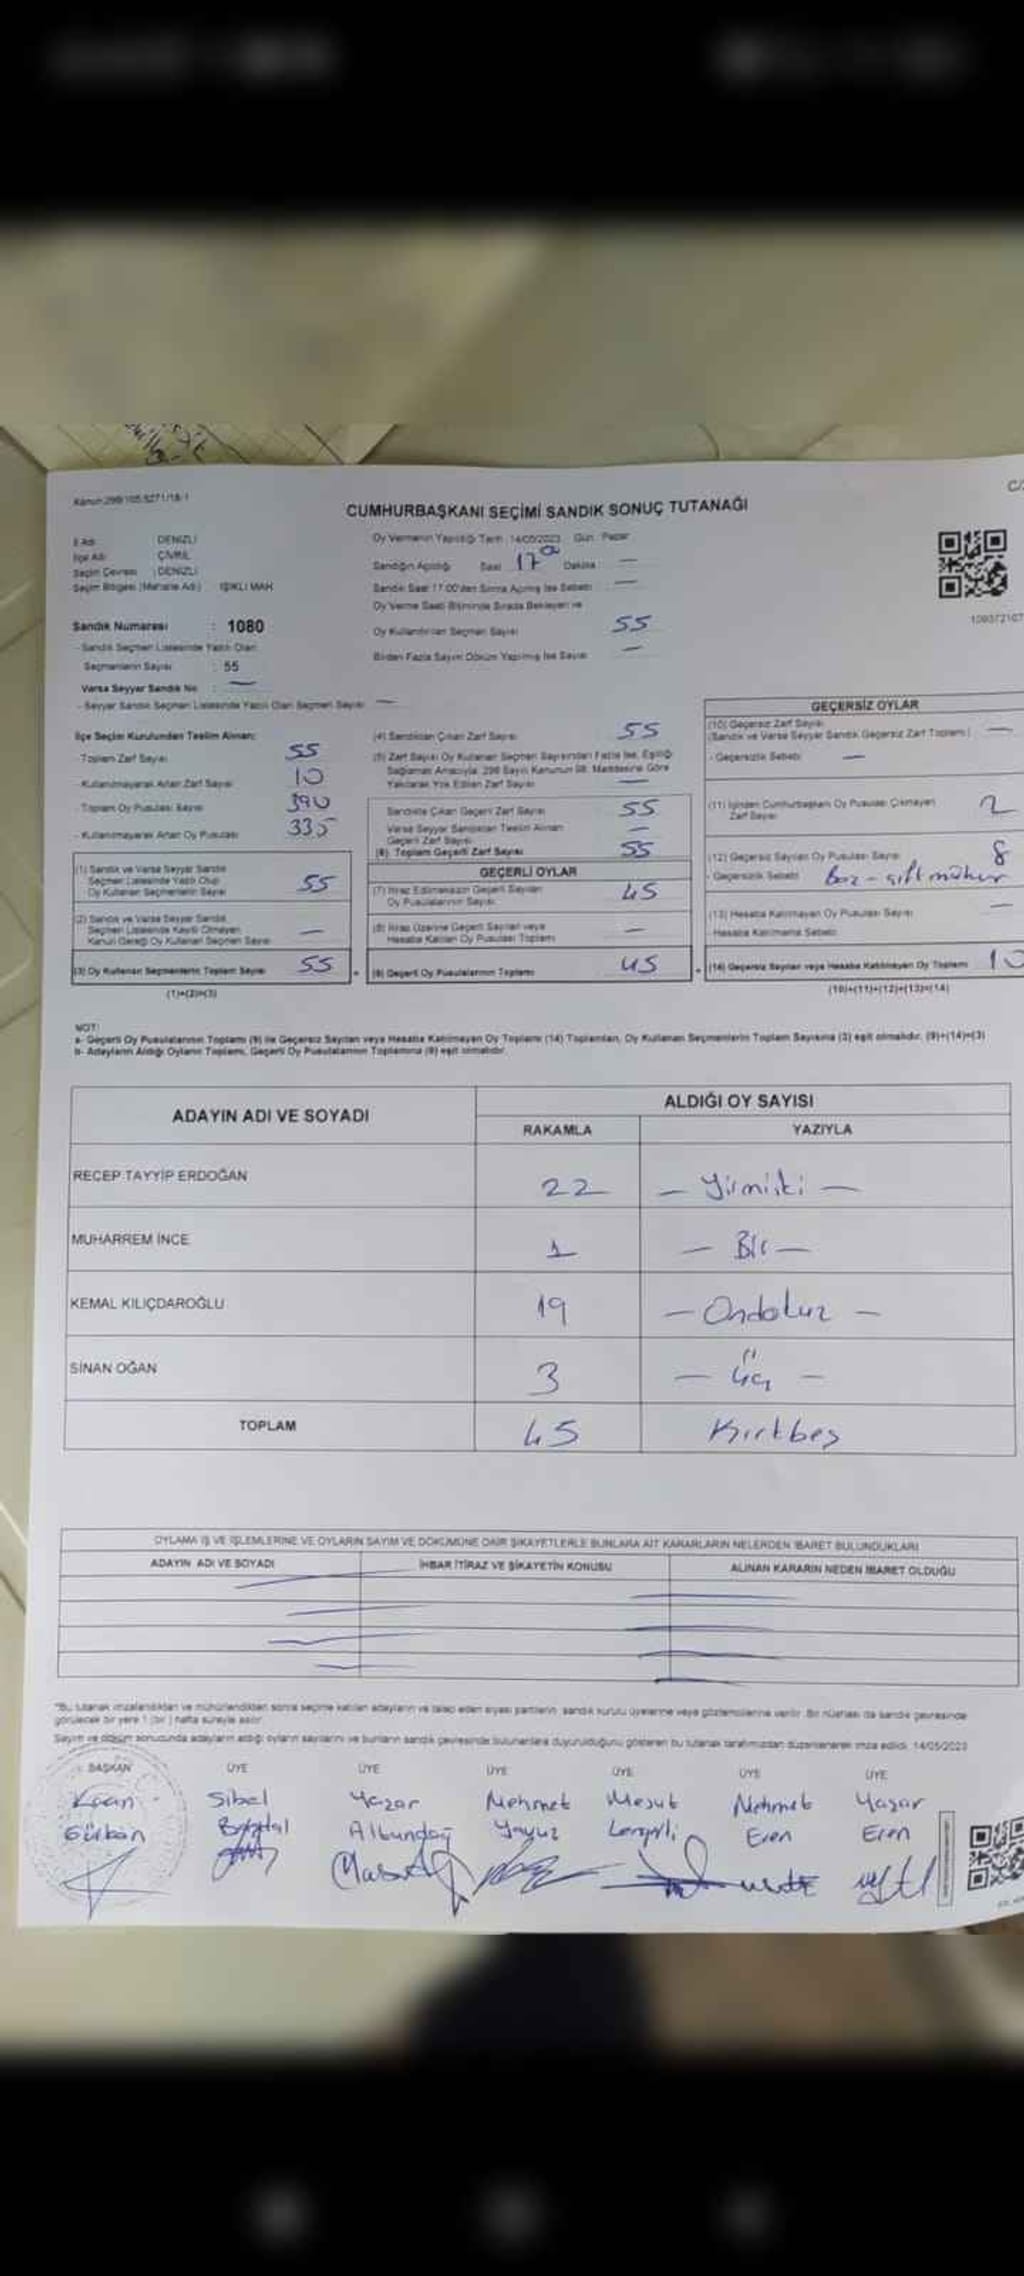 Kanun:298/105.5271/18-1
CUMHURBAŞKANI SEÇİMİ SANDIK SONUÇ TUTANAĞI
İl Adı : DENİZLİ
İlçe Adı : ÇİVRİL
Seçim Çevresi : DENİZLİ
Seçim Bölgesi (Mahalle Adı) : IŞIKLI MAH
Sandık Numarası : 1080
- Sandık Seçmen Listesinde Yazılı Olan
Seçmenlerin Sayısı : 55
Varsa Seyyar Sandık No : —
- Seyyar Sandık Seçmen Listesinde Yazılı Olan Seçmen Sayısı —
Oy Vermenin Yapıldığı Tarih : 14/05/2023 Gün : Pazar
Sandığın Açıldığı Saat : 17 Dakika : —
Sandık Saat 17:00'den Sonra Açılmış İse Sebebi : —
Oy Verme Saati Bitiminde Sırada Bekleyen ve
Oy Kullandırılan Seçmen Sayısı 55
Birden Fazla Sayım Döküm Yapılmış İse Sayısı —
İlçe Seçim Kurulundan Teslim Alınan:
- Toplam Zarf Sayısı 55
- Kullanılmayarak Artan Zarf Sayısı 10
- Toplam Oy Pusulası Sayısı 390
- Kullanılmayarak Artan Oy Pusulası 335
(1) Sandık ve Varsa Seyyar Sandık
Seçmen Listesinde Yazılı Olup
Oy Kullanan Seçmenlerin Sayısı 55
(2) Sandık ve Varsa Seyyar Sandık
Seçmen Listesinde Kayıtlı Olmayan
Kanun Gereği Oy Kullanan Seçmen Sayısı —
(3) Oy Kullanan Seçmenlerin Toplam Sayısı 55
(1)+(2)=(3)
(4) Sandıktan Çıkan Zarf Sayısı 55
(5) Zarf Sayısı Oy Kullanan Seçmen Sayısından Fazla İse, Eşitliği
Sağlamak Amacıyla, 298 Sayılı Kanunun 98. Maddesine Göre
Yakılarak Yok Edilen Zarf Sayısı —
Sandıkta Çıkan Geçerli Zarf Sayısı 55
Varsa Seyyar Sandıktan Teslim Alınan
Geçerli Zarf Sayısı —
(6) Toplam Geçerli Zarf Sayısı 55
GEÇERLİ OYLAR
(7) İtiraz Edilmeksizin Geçerli Sayılan
Oy Pusulalarının Sayısı 45
(8) İtiraz Üzerine Geçerli Sayılan veya
Hesaba Katılan Oy Pusulası Toplamı —
(9) Geçerli Oy Pusulalarının Toplamı 45
GEÇERSİZ OYLAR
(10) Geçersiz Zarf Sayısı
(Sandık ve Varsa Seyyar Sandık Geçersiz Zarf Toplamı) —
- Geçersizlik Sebebi —
(11) İçinden Cumhurbaşkanı Oy Pusulası Çıkmayan
Zarf Sayısı 2
(12) Geçersiz Sayılan Oy Pusulası Sayısı 8
- Geçersizlik Sebebi Boz - çift mühür
(13) Hesaba Katılmayan Oy Pusulası Sayısı —
- Hesaba Katılmama Sebebi
(14) Geçersiz Sayılan veya Hesaba Katılmayan Oy Toplamı 10
(10)+(11)+(12)+(13)=(14)
NOT:
a- Geçerli Oy Pusulalarının Toplamı (9) ile Geçersiz Sayılan veya Hesaba Katılmayan Oy Toplamı (14) Toplamları, Oy Kullanan Seçmenlerin Toplam Sayısına (3) eşit olmalıdır. (9)+(14)=(3)
b- Adayların Aldığı Oyların Toplamı, Geçerli Oy Pusulalarının Toplamına (9) eşit olmalıdır.
ADAYIN ADI VE SOYADI ALDIĞI OY SAYISI
RAKAMLA YAZIYLA
RECEP TAYYİP ERDOĞAN 22 — Yirmiiki —
MUHARREM İNCE 1 — Bir —
KEMAL KILIÇDAROĞLU 19 — Ondokuz —
SİNAN OĞAN 3 — Üç —
TOPLAM 45 Kırkbeş
OYLAMA İŞ VE İŞLEMLERİNE VE OYLARIN SAYIM VE DÖKÜMÜNE DAİR ŞİKAYETLERLE BUNLARA AİT KARARLARIN NELERDEN İBARET BULUNDUKLARI
ADAYIN ADI VE SOYADI İHBAR İTİRAZ VE ŞİKAYETİN KONUSU ALINAN KARARIN NEDEN İBARET OLDUĞU
*Bu tutanak imzalandıktan ve mühürlendikten sonra seçime katılan adayların ve talep eden siyasi partilerin sandık kurulu üyelerine veya gözlemcilerine verilir. Bir nüshası da sandık çevresinde
görülecek bir yere 1 (bir) hafta süreyle asılır.
Sayım ve döküm sonucunda adayların aldığı oyların sayılarını ve bunların sandık çevresinde bulunanlara duyurulduğunu gösteren bu tutanak tarafımızdan düzenlenerek imza edildi. 14/05/2023
BAŞKAN ÜYE ÜYE ÜYE ÜYE ÜYE ÜYE
Kaan Sibel Yazar Mehmet Mesut Mehmet Yaşar
Gürban Albundağ Yavuz Eren Eren